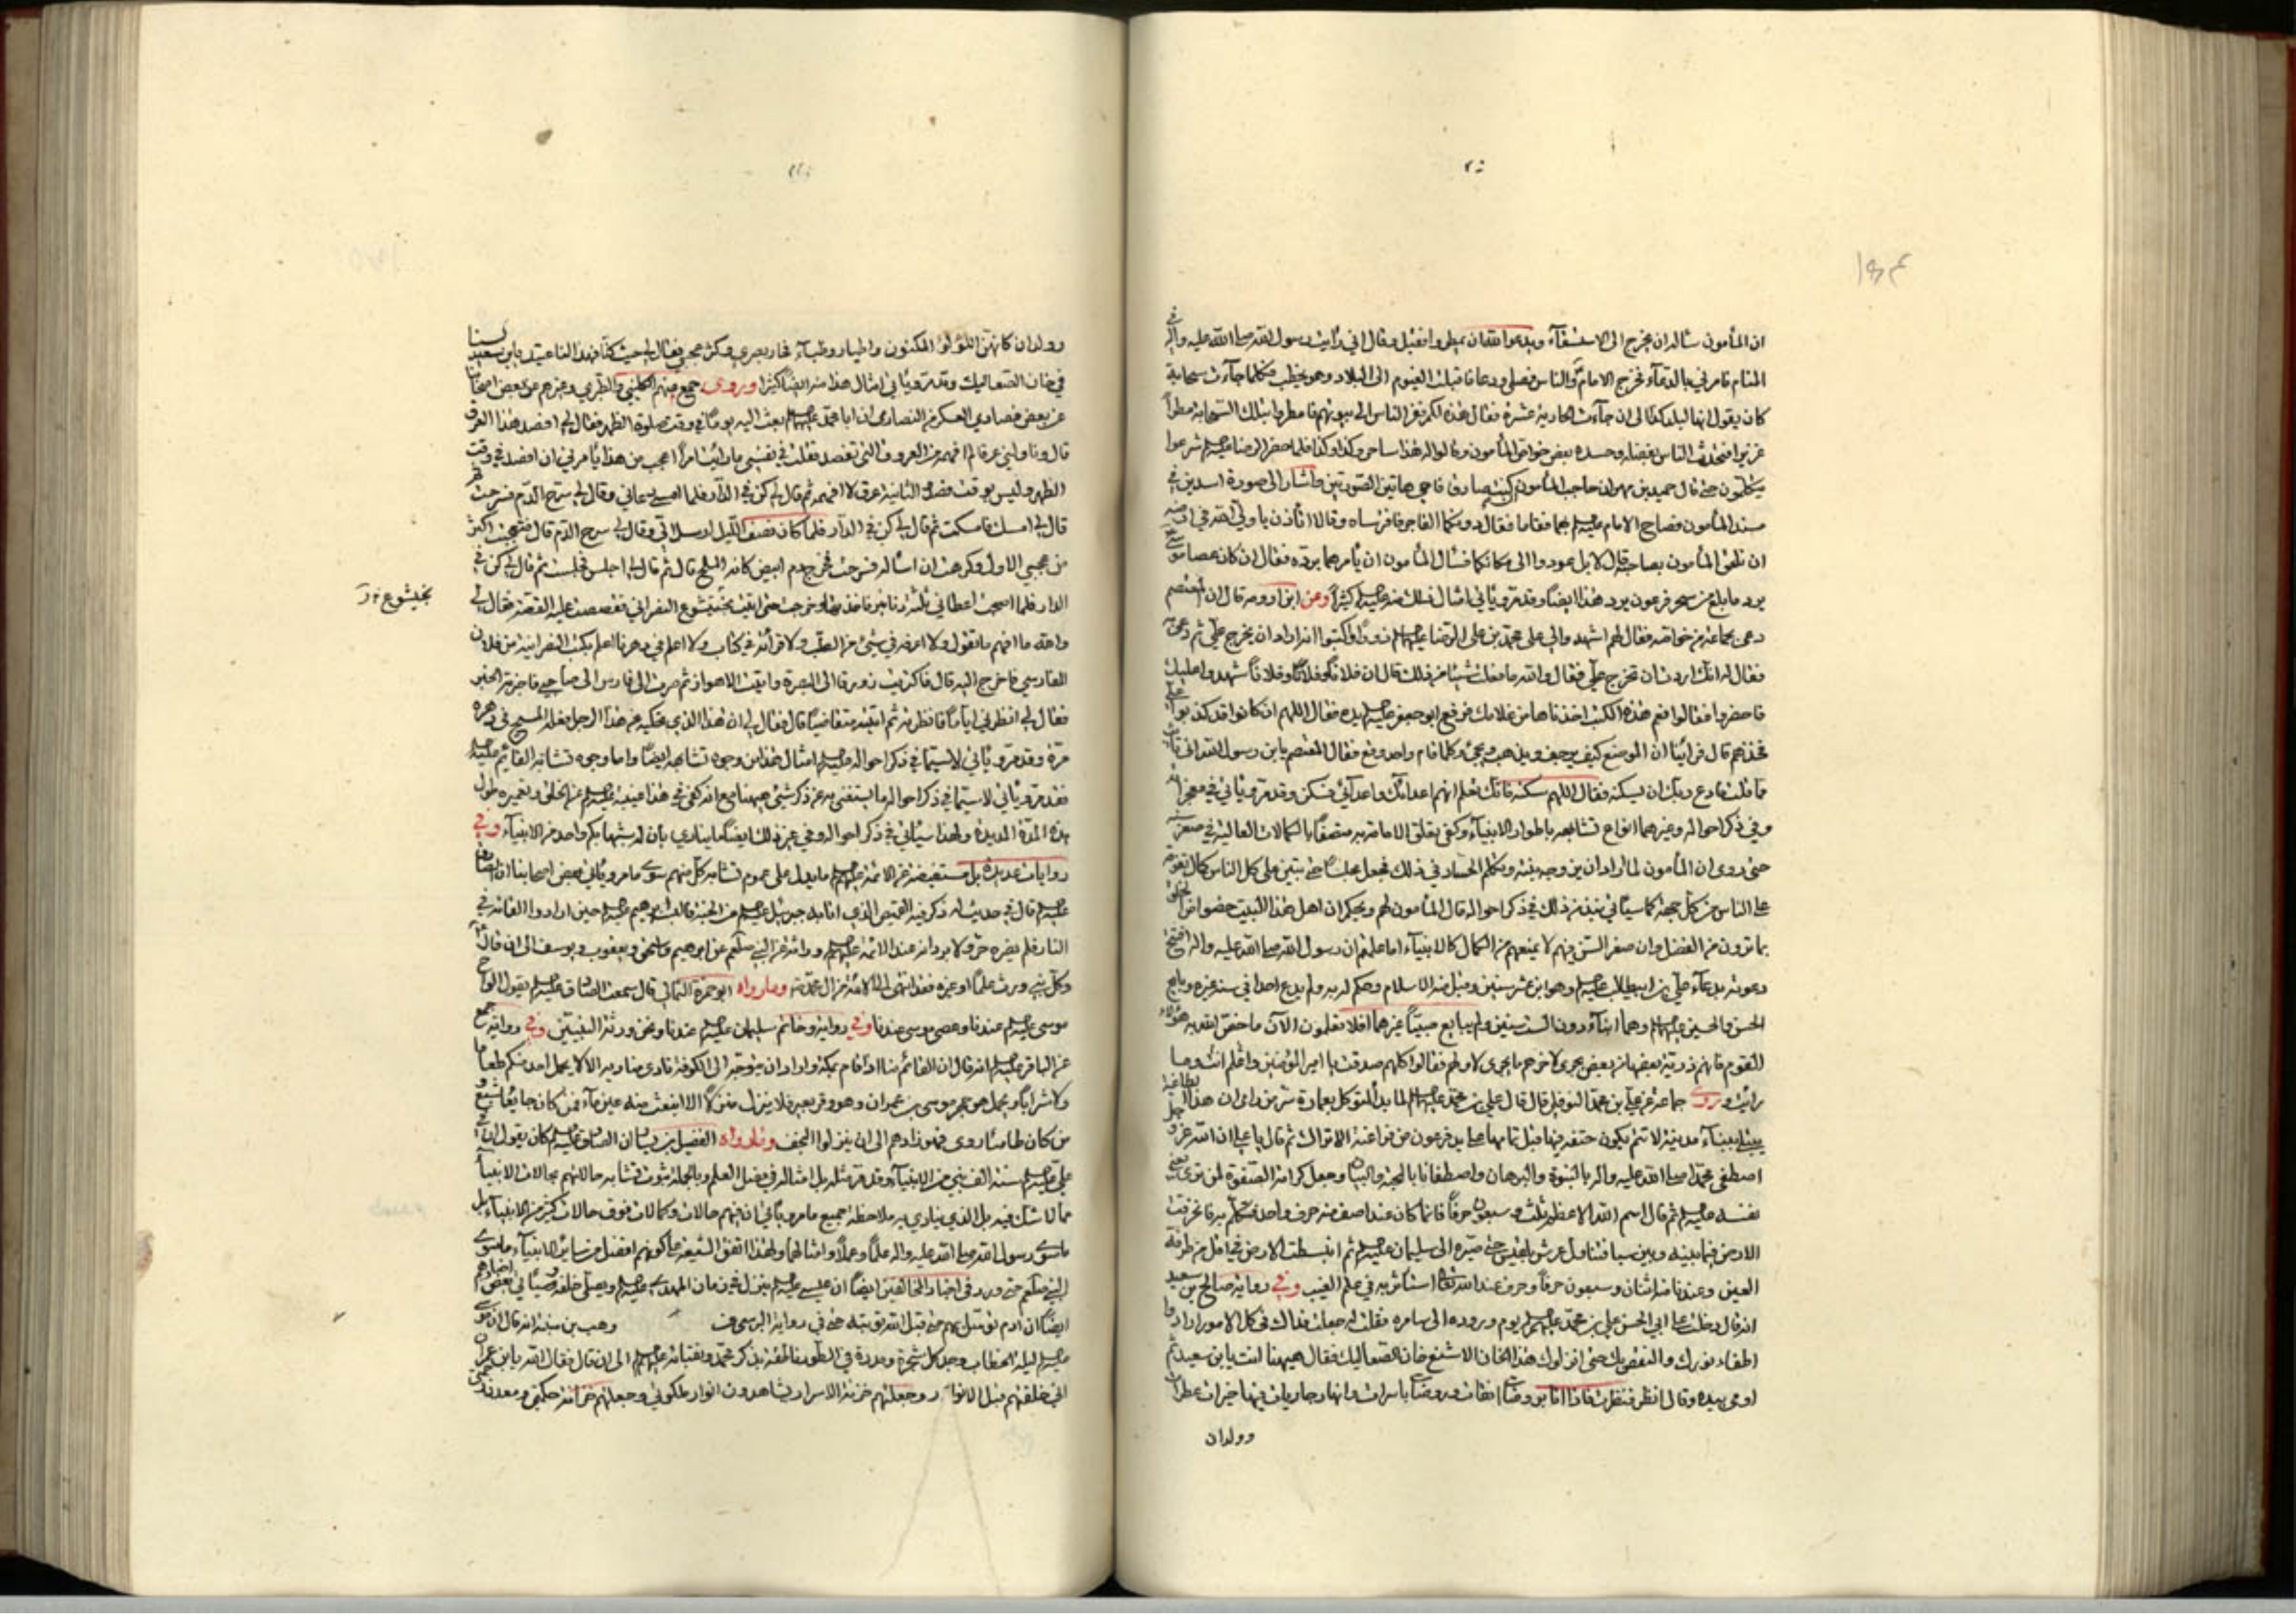 ان المأمون سأله ان يخرج الى الاستسقآء ويدعوا الله ان يمطروا فقبل وقال اني رأيت رسول الله صلى الله عليه واله في
المنام فامرني بالدعآء فخرج الامام والناس فصلى ودعا فاقبلت الغيوم الى البلاد وهو يخطب فكلما جآءت سحابة
كان يقول انها لبلد كذا الى ان جآءت الحادية عشرة فقال هذه لكم فنفر الناس الى بيوتهم فامطرهم تلك السحابة مطراً
غزيراً فتحدث الناس بفضله وحسده بعض خواص المأمون وقالوا له هذا ساحر وكذا وكذا فلما حضر الرضا عليه السلم شرعوا
يتكلمون حتى قال حميد بن مهران حاجب المأمون ان كنت صادقاً فاحي هاتين الصورتين واشار الى صورة اسدين في
مسند المأمون فصاح الامام عليه السلم بهما فقاما فقال دونكما الفاجر فافترساه وقالا أتأذن يا ولي الله في ارضه
ان نلحق المأمون بصاحبه قال لا بل عودوا الى مكانكما فسأل المأمون ان يأمرهما برده فقال ان كان عصا موسى
يرد ما بلع من سحر فرعون يرد هذا ايضاً وقد مر ويأتي امثال ذلك منه عليه السلم كثيراً وعن ابن ارومه قال ان المعتصم
دعى بجماعة من خواصه فقال لهم اشهدوا لي على محمد بن على الرضا عليهم السلم زوراً واكتبوا انه اراد ان يخرج علي ثم دعاه
فقال له انك اردت ان تخرج علي فقال والله ما فعلت شيئاً من ذلك قال ان فلاناً وفلاناً وفلاناً شهدوا عليك
فاحضروا فقالوا نعم هذه الكتب اخذناها من غلامك فرفع ابو جعفر عليه السلم يده فقال اللهم ان كانوا قد كذبوا علي
فخذهم قال فرأينا ان الموضع كيف يرجف ويذهب ويجئ وكلما قام واحد وقع فقال المعتصم يابن رسول الله اني تائب
مما قلت فادع ربك ان يسكنه فقال اللهم سكنه فانك تعلم انهم اعداءك واعدآئي فسكن وقد مر ويأتي في معجزاته
وفي ذكر احواله وغيرهما انواع تشابهه باطوار الانبيآء وكفى بتعلق الامامة به متصفاً بالكمالات العالية في صغره
حتى روى ان المأمون لما اراد ان يزوجه بنته وتكلم الحساد في ذلك فجعل مجلساً حتى تبين على كل الناس كمال تفوقه
على الناس من كل جهة كما سيأتي نبذ من ذلك في ذكر احواله قال المأمون لهم ويحكم ان اهل هذا البيت خصوا من الخلق
بما ترون من الفضل وان صغر السن فيهم لا يمنعهم من الكمال كالانبيآء اما علمتم ان رسول الله صلى الله عليه واله افتتح
دعوته بدعآء علي بن ابيطالب عليه السلم وهو ابن عشر سنين وقبل منه الاسلام وحكم له به ولم يدع احداً في سنه غيره وبايع
الحسن والحسين عليهما السلم وهما ابنآء دون الست سنين ولم يبايع صبيّاً غيرهما افلا تعلمون الآن ما خص الله به هؤلاء
القوم فانهم ذرية بعضها من بعض يجرى لآخرهم ما يجرى لاولهم فقالوا كلهم صدقت يا امير المؤمنين وافلم انت وما
رأيت وروى جماعة عن علي بن محمد النوفلي قال قال علي بن محمد عليهم السلم لما بدأ المتوكل بعمارة سر من رأى ان هذا الطاغية
يبتلي ببنآء مدينة لا تتم يكون حتفه فيها قبل تمامها على يد فرعون من فراعنة الاتراك ثم قال يا علي ان الله عز وجل
اصطفى محمداً صلى الله عليه واله بالنبوة والبرهان واصطفانا بالمحبة والبيان وجعل كرامة الصفوة لمن ترى يعني
نفسه عليه السلم ثم قال اسم الله الاعظم ثلث وسبعون حرفاً فانما كان عند اصف منه حرف واحد فتكلم به فانخرقت
الارض فيما بينه وبين سبا فتناول عرش بلقيس حتى صيره الى سليمان عليه السلم ثم انبسطت الارض في اقل من طرفة
العين وعندنا منه اثنان وسبعون حرفاً وحرف عند الله تعالى استأثر به في علم الغيب وفي رواية صالح بن سعيد
انه قال دخلت على ابي الحسن علي بن محمد عليهم السلم يوم وروده الى سامره فقلت له جعلت فداك في كل الامور ارادوا
اطفاء نورك والنقص بك حتى انزلوك هذا الخان الاشنع خان الصعاليك فقال هيهنا انت يابن سعيد ثم
اومى بيده وقال انظر فنظرت فاذا انا بروضات انفات وروضات باسرات وانهار جاريات فيها خيرات عطرات
وولدان
وولدان كانهن اللؤلؤ المكنون واطيار وظبآء فحار بصري وكثر عجبي فقال لي حيث كنا فهذا لنا عتيد يابن سعيد لسنا
في خان الصعاليك وقد مر ويأتي امثال هذا منه ايضاً كثيراً وروى جمع منهم الكليني والطبري وغيرهم عن بعض اصحابنا
عن بعض فصادي العسكر من النصارى ان ابا محمد عليه السلم بعث اليه يوماً في وقت صلوة الظهر فقال لي افصد هذا العرق
قال وناولني عرقاً لم افهمه من العروق التي تفصد فقلت في نفسي ما رأيت امراً اعجب من هذا يأمرني ان افصد في وقت
الظهر وليس بوقت فصد الثانية عرق لا افهمه ثم قال لي كن في الدار فلما امسى دعاني وقال لي سرح الدم فسرحت ثم
قال لي امسك فامسكت ثم قال لي كن في الدار فلما كان نصف الليل ارسل الي وقال لي سرح الدم قال فتعجبت اكثر
من عجبي الاول وكرهت ان اسأله فسرحت فخرج دم ابيض كانه الملح قال ثم قال لي احبس فحبست ثم قال لي كن في
الدار فلما اصبحت اعطاني ثلثة دنانير فاخذتها وخرجت حتى اتيت بختيشوع النصراني فقصصت عليه القصة فقال لي
بختيشوع
والله ما افهم ما تقول ولا اعرفه في شيئ من الطب ولا قرأته في كتاب ولا اعلم في دهرنا اعلم بكتب النصرانية من فلان
الفارسي فاخرج اليه قال فاكتريت زورقاً الى البصرة واتيت الاهواز ثم صرت الى فارس الى صاحبي فاخبرته الخبر
فقال لي انظرني اياماً فانظرته ثم اتيته متقاضياً قال فقال لي ان هذا الذي تحكيه عن هذا الرجل فعله المسيح في دهره
مرة وقد مر ويأتي لا سيما في ذكر احواله عليه السلم امثال هذا من وجوه تشابهه ايضاً واما وجوه تشابه القائم عليه السلم
فقد مر ويأتي لا سيما في ذكر احواله ما يستغنى به عن ذكر شئ هيهنا مع انه كفى في هذا غيبته عليه السلم عن الخلق وتعميره طول
هذه المدة المديدة ولهذا سيأتي في ذكر احواله وفي غير ذلك ايضاً ما ينادي بان له شبهاً بكم واحد من الانبيآء وفي
روايات عديدة بل مستفيضة عن الائمة عليهم السلم ما يدل على عموم تشابه كل منهم سوى ما مر ويأتي فعن بعض اصحابنا ان الصادق
عليه السلم قال في حديث له ذكر فيه القميص الذي اتا به جبرئيل عليه السلم من الجنة فالبسه ابرهيم عليه السلم حين ارادوا القائه في
النار فلم يضره حرق ولا برد انه عند الائمة عليهم السلم وراثة عن النبي صلعم عن ابرهيم واسحق ويعقوب ويوسف الى ان قال
وكل نبي ورث علماً او غيره فقد انتهى الى الائمة من آل محمد ومما رواه ابو حمزة الثمالي قال سمعت الصادق عليه السلم يقول الواح
موسى عليه السلم عندنا وعصى موسى عندنا وفي رواية وخاتم سليمان عليه السلم عندنا ونحن ورثة النبيين وفي رواية جمع
عن الباقر عليه السلم انه قال ان القائم منا اذا قام بمكة واراد ان يتوجه الى الكوفة نادى مناديه الا لا يحمل احد منكم طعاماً
ولا شراباً ويحمل هو حجر موسى بن عمران وهو وقر بعير فلا ينزل منزلاً الا انبعث منه عين مآء فمن كان جايعاً شبع و
من كان ظامئاً روى فهو زادهم الى ان ينزلوا النجف ومما رواه الفضيل بن يسار ان الصادق عليه السلم كان يقول ان في
علي عليه السلم سنة الف نبي من الانبيآء وقد مر مثله بل امثاله في فصل العلم وبالجملة ثبوت تشابه حالاتهم بحالات الانبيآء
مما لا شك فيه بل الذي ينادي به ملاحظة جميع ما مر ويأتي ان فيهم حالات وكمالات فوق حالات كثير من الانبيآء بل
ما سوى رسول الله صلى الله عليه واله علماً وعملاً وامثالهما ولهذا اتفق الشيعة على كونهم افضل من سائر الانبيآء ما سوى
النبي صلعم حتى ورد في اخبار المخالفين ايضاً ان عيسى عليه السلم ينزل في زمان المهدي عليه السلم ويصلي خلفه وسيأتي في بعض اخبارهم
ايضاً ان آدم توسل بهم حتى قبل الله توبته حتى في رواية البرسي وهب بن منبه انه قال ان موسى
عليه السلم ليلة الخطاب وجد كل شجرة ومدرة في الطور ناطقة بذكر محمد ونقبائه عليهم السلم الى ان قال فقال الله يابن عمران
اني خلقتهم قبل الانوار وجعلتهم خزنة الاسرار يشاهدون انوار ملكوتي وجعلتهم خزانة حكمتي ومعدن